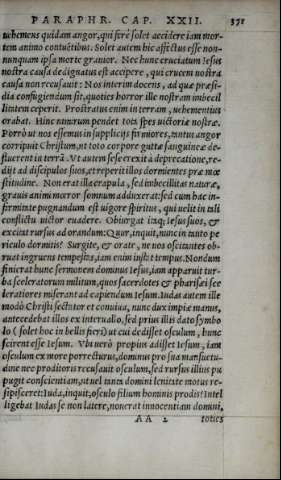 PARAPHR. CAP. XXII. 371
uehemens quidam angor, qui ferè solet accidere iam mor-
tem animo contuẽtibus. Solet autem hic affectus esse non-
nunquam ipsa morte grauior. Nec hunc cruciatum Iesus
nostra causa dedignatus est accipere, qui crucem nostra
causa non recusauit: Nos interim docens, ad quæ præsi-
dia confugiendum sit, quoties horror ille nostram imbecil
litatem ceperit. Prostratus enim in terram, uehementius
orabat. Hinc nimirum pendet tota spes uictoriæ nostræ.
Porrò ut nos essemus in supplicijs firmiores, tantus angor
corripuit Christum, ut toto corpore guttæ sanguineæ de-
fluerent in terrã. Vt autem sese erexit à deprecatione, re-
dijt ad discipulos suos, et reperit illos dormientes præ mœ
stitudine. Non erat illa crapula, sed imbecillitas naturæ,
grauis animi mœror somnum adduxerat: sed cum hac in-
firmitate pugnandum est uigore spiritus, qui uelit in tali
conflictu uictor euadere. Obiurgat itaq; Iesus suos, &
excitat rursus ad orandum: Quur, inquit, nunc in tanto pe
riculo dormitis? Surgite, & orate, ne nos oscitantes ob-
ruat ingruens tempestas, iam enim instat tempus. Nondum
finierat hunc sermonem dominus Iesus, iam apparuit tur-
ba sceleratorum militum, quos sacerdotes & pharisæi sce
leratiores miserant ad capiendum Iesum. Iudas autem ille
modò Christi sectator et conuiua, nunc dux impiæ manus,
antecedebat illos ex interuallo, sed prius illis dato symbo
lo ( solet hoc in bellis fieri) ut cui dedisset osculum, hunc
scirent esse Iesum. Vbi uerò propius adisset Iesum, iam
osculum ex more porrecturus, dominus pro sua mansuetu-
dine nec proditoris recusauit osculum, sed rursus illius pu
pugit conscientiam, ut uel tanta domini lenitate motus re-
sipisceret: Iuda, inquit, osculo filium hominis prodis? Intel
ligebat Iudas se non latere, nouerat innocentiam domini,
AA 2 toties